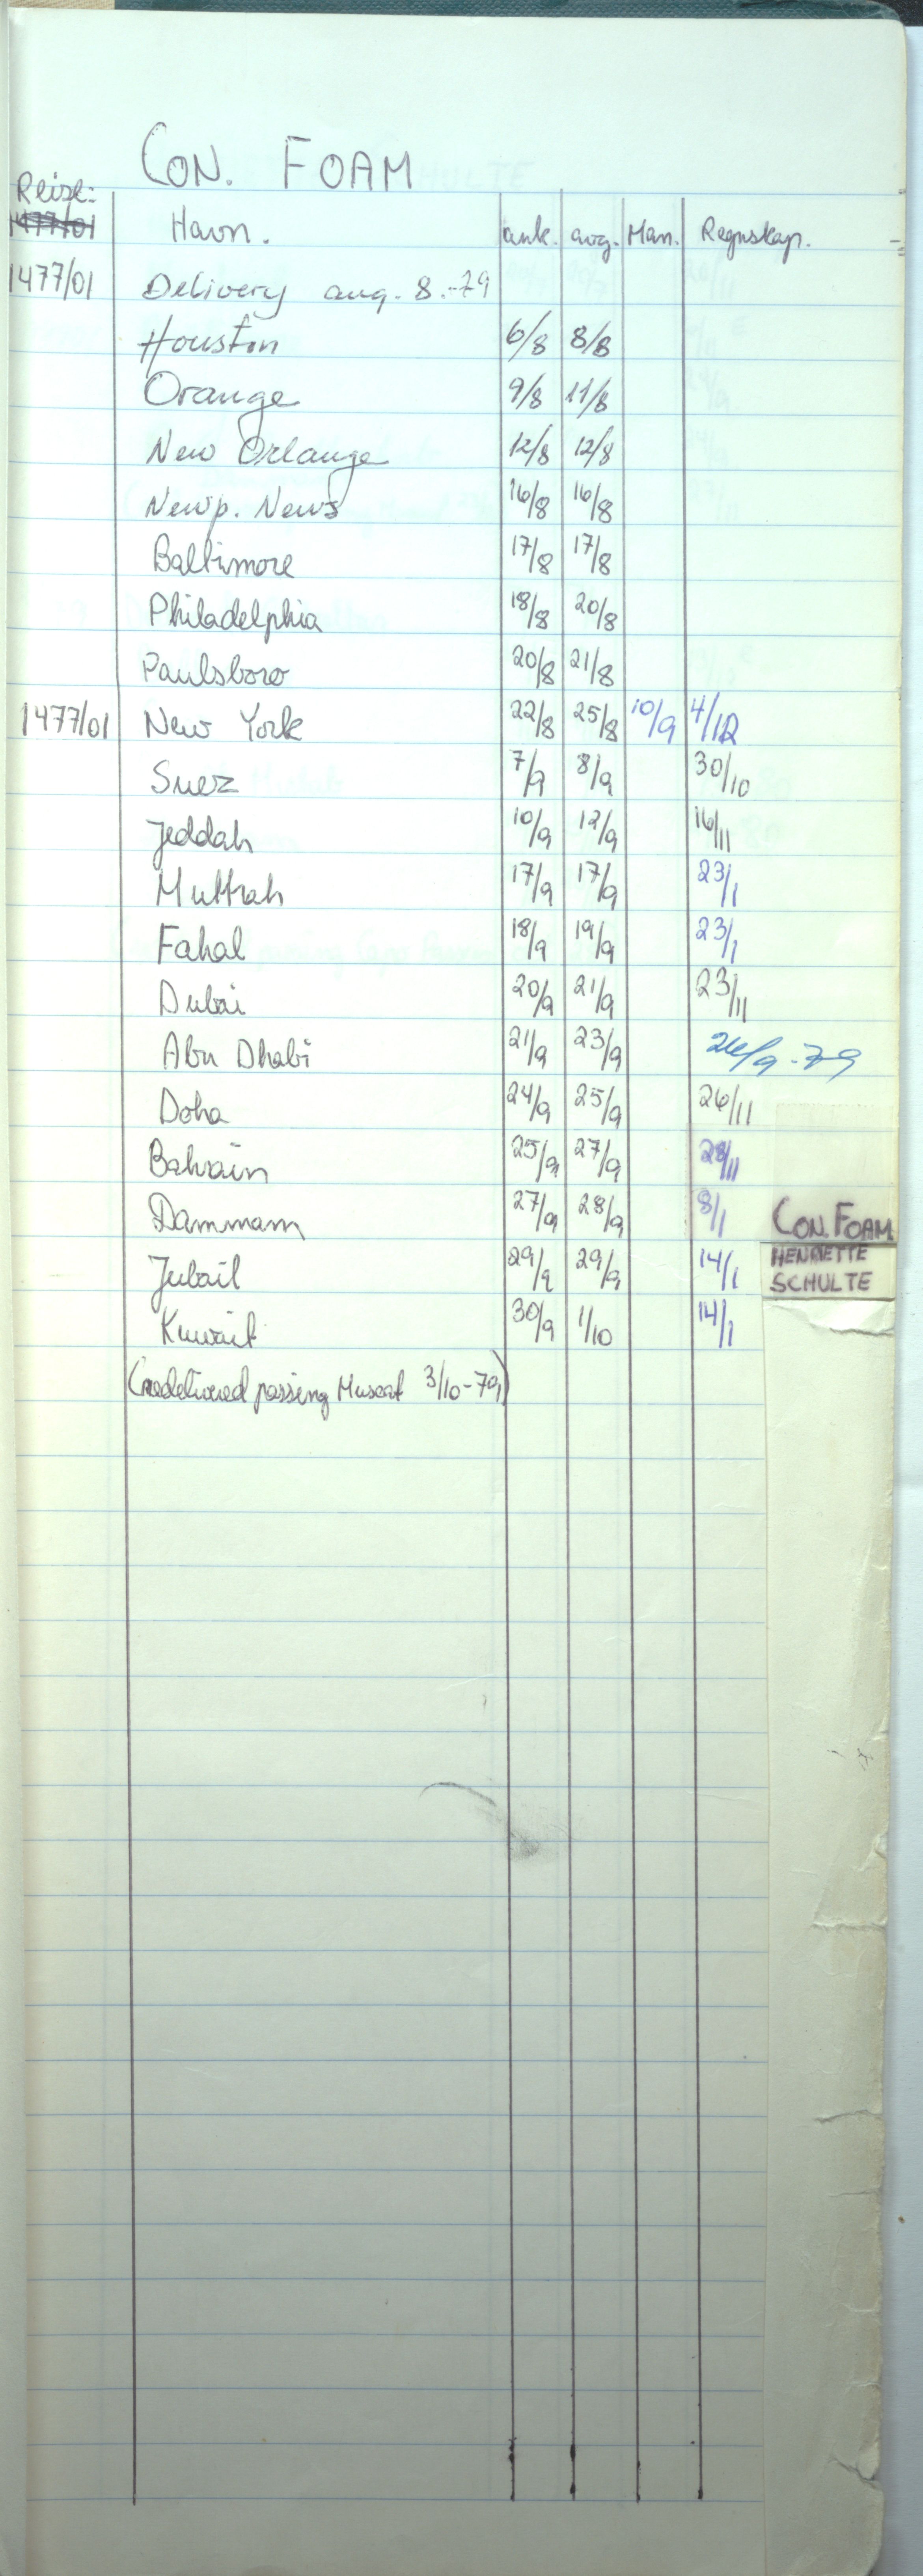 CON. FOAM
Reise:
1477/01 Havn. ank. avg. Man. Regnskap.
1477/01 Delivery aug. 8.-79
Houston 6/8 8/8
Orange 9/8 11/8
New Orlange 12/8 12/8
Newp. News 16/8 16/8
Baltimore 17/8 17/8
Philadelphia 18/8 20/8
Paulsboro 20/8 21/8
1477/01 New York 22/8 25/8 10/9 4/12
Suez 7/9 8/9 30/10
Jeddah 10/9 12/9 16/11
Muttrah 17/9 17/9 23/1
Fahal 18/9 19/9 23/1
Dubai 20/9 21/9 23/11
Abu Dhabi 21/9 23/9 26/9-79
Doha 24/9 25/9 26/11
Bahrain 25/9 27/9 28/11
Dammam 27/9 28/9 8/1
CON. FOAM
Jubail 29/9 29/9 14/1
HENRIETTE
SCHULTE
Kuwait 30/9 1/10 14/1
(redelivered passing Muscat 3/10-79)